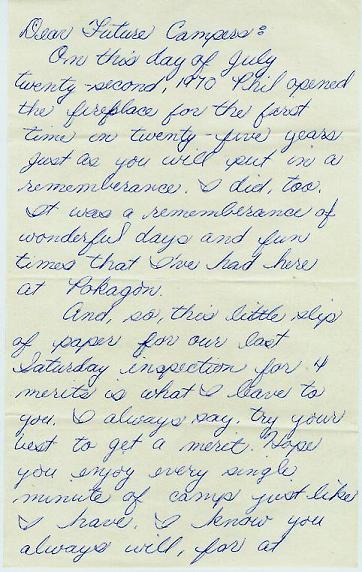 Dear Future Campers:
On this day of July
twenty-second, 1970 Phil opened
the fireplace for the first
time in twenty-five years
just as you will put in a
rememberance. I did, too.
It was a rememberance of
wonderful days and fun
times that I've had here
at Pokagon.
And, so, this little slip
of paper for our last
Saturday inspection for 4
merits is what I leave to
you. I always say, try your
best to get a merit. Hope
you enjoy every single
minute of camp just like
I have. I know you
always will, for at